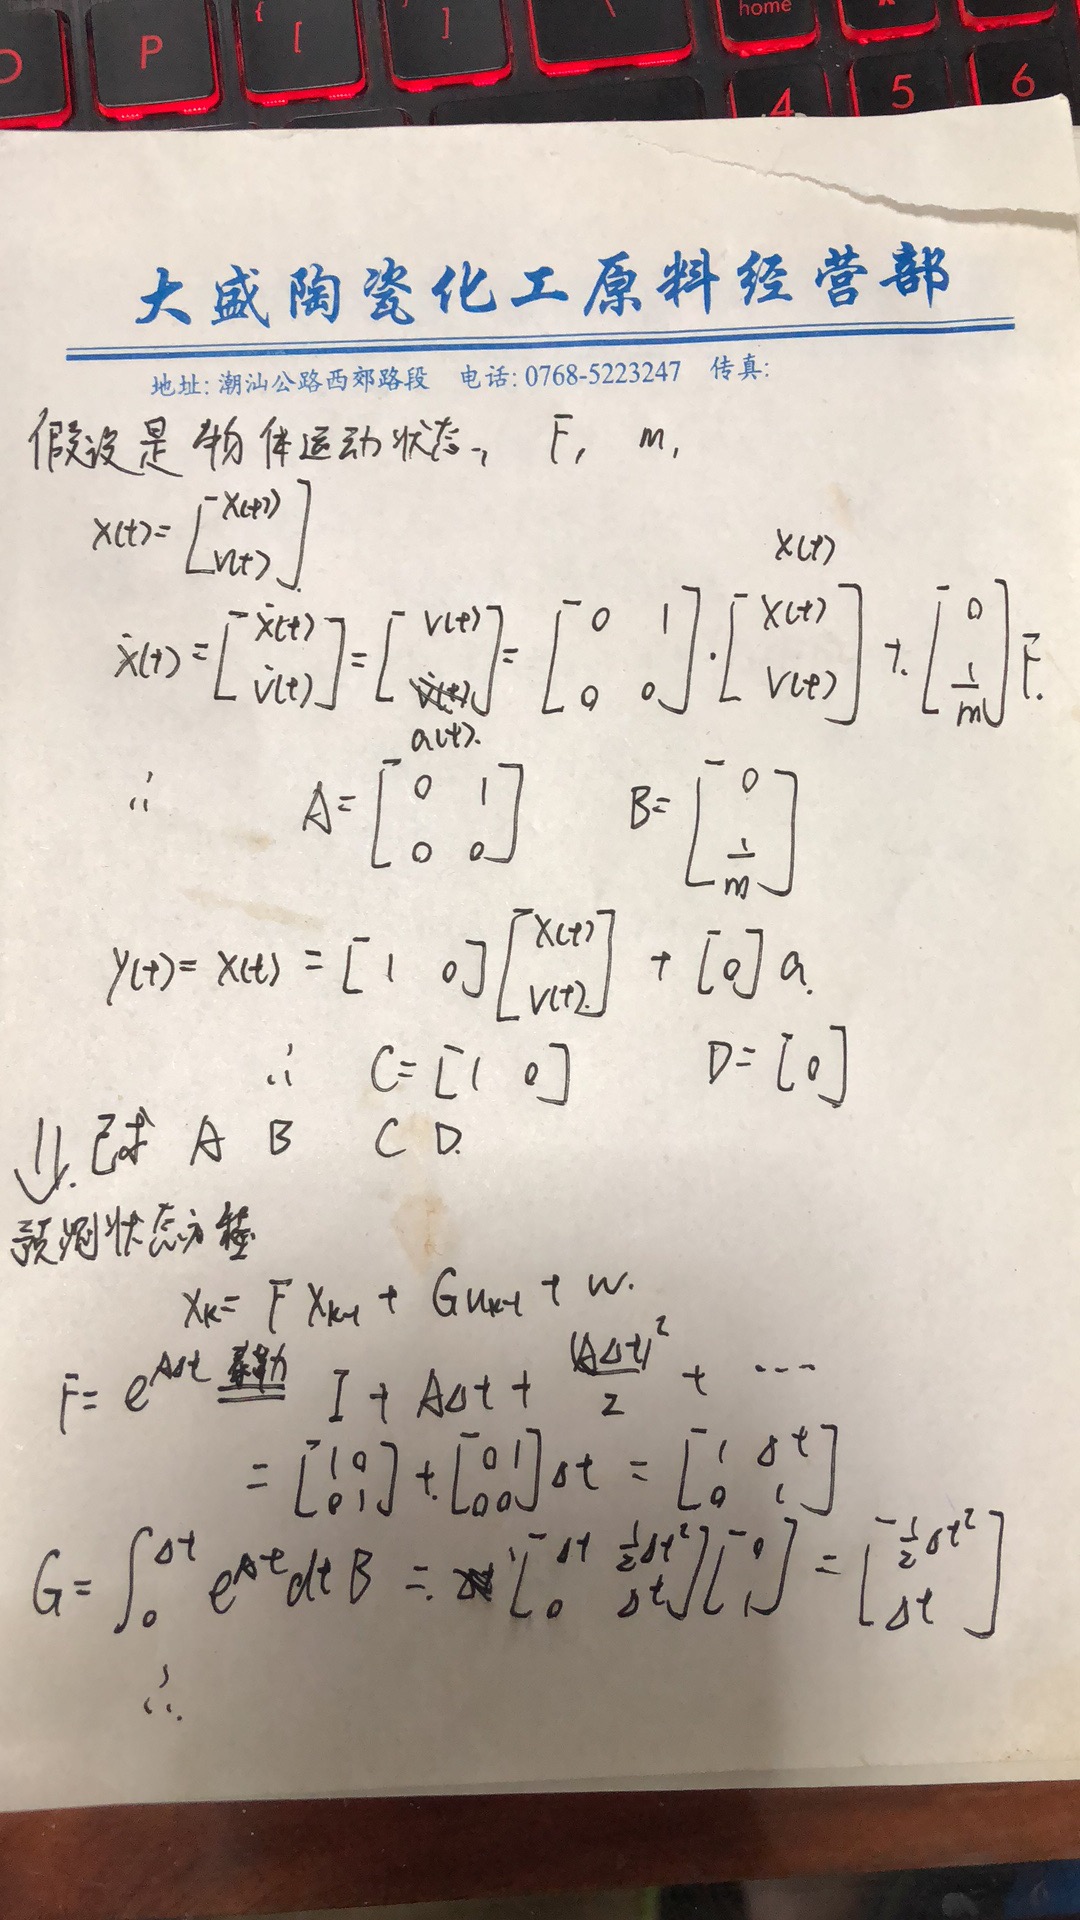 P { [ } ] \ home
4 5 6
大盛陶瓷化工原料经营部
地址:潮汕公路西郊路段 电话:0768-5223247 传真:
假设是物体运动状态, F, m,
X(t)=[X(t) V(t)]
X(t)
Ẋ(t)=[Ẋ(t) V̇(t)]=[V(t) a(t).]=[0 1 0 0]·[X(t) V(t)]+[0 1/m]F.
∴ A=[0 1 0 0] B=[0 1/m]
y(t)=X(t)=[1 0][X(t) V(t).]+[0]a.
∴ C=[1 0] D=[0]
⇓. 已求 A B C D.
预测状态方程
X_k=F X_{k-1}+G u_{k-1}+W.
F=e^{AΔt} 泰勒 I+AΔt+(AΔt)²/2+⋯
=[1 0 0 1]+[0 1 0 0]Δt=[1 Δt 0 1]
G=∫_0^{Δt} e^{At}dt B=[Δt ½Δt² 0 Δt][0 1]=[½Δt² Δt]
∴